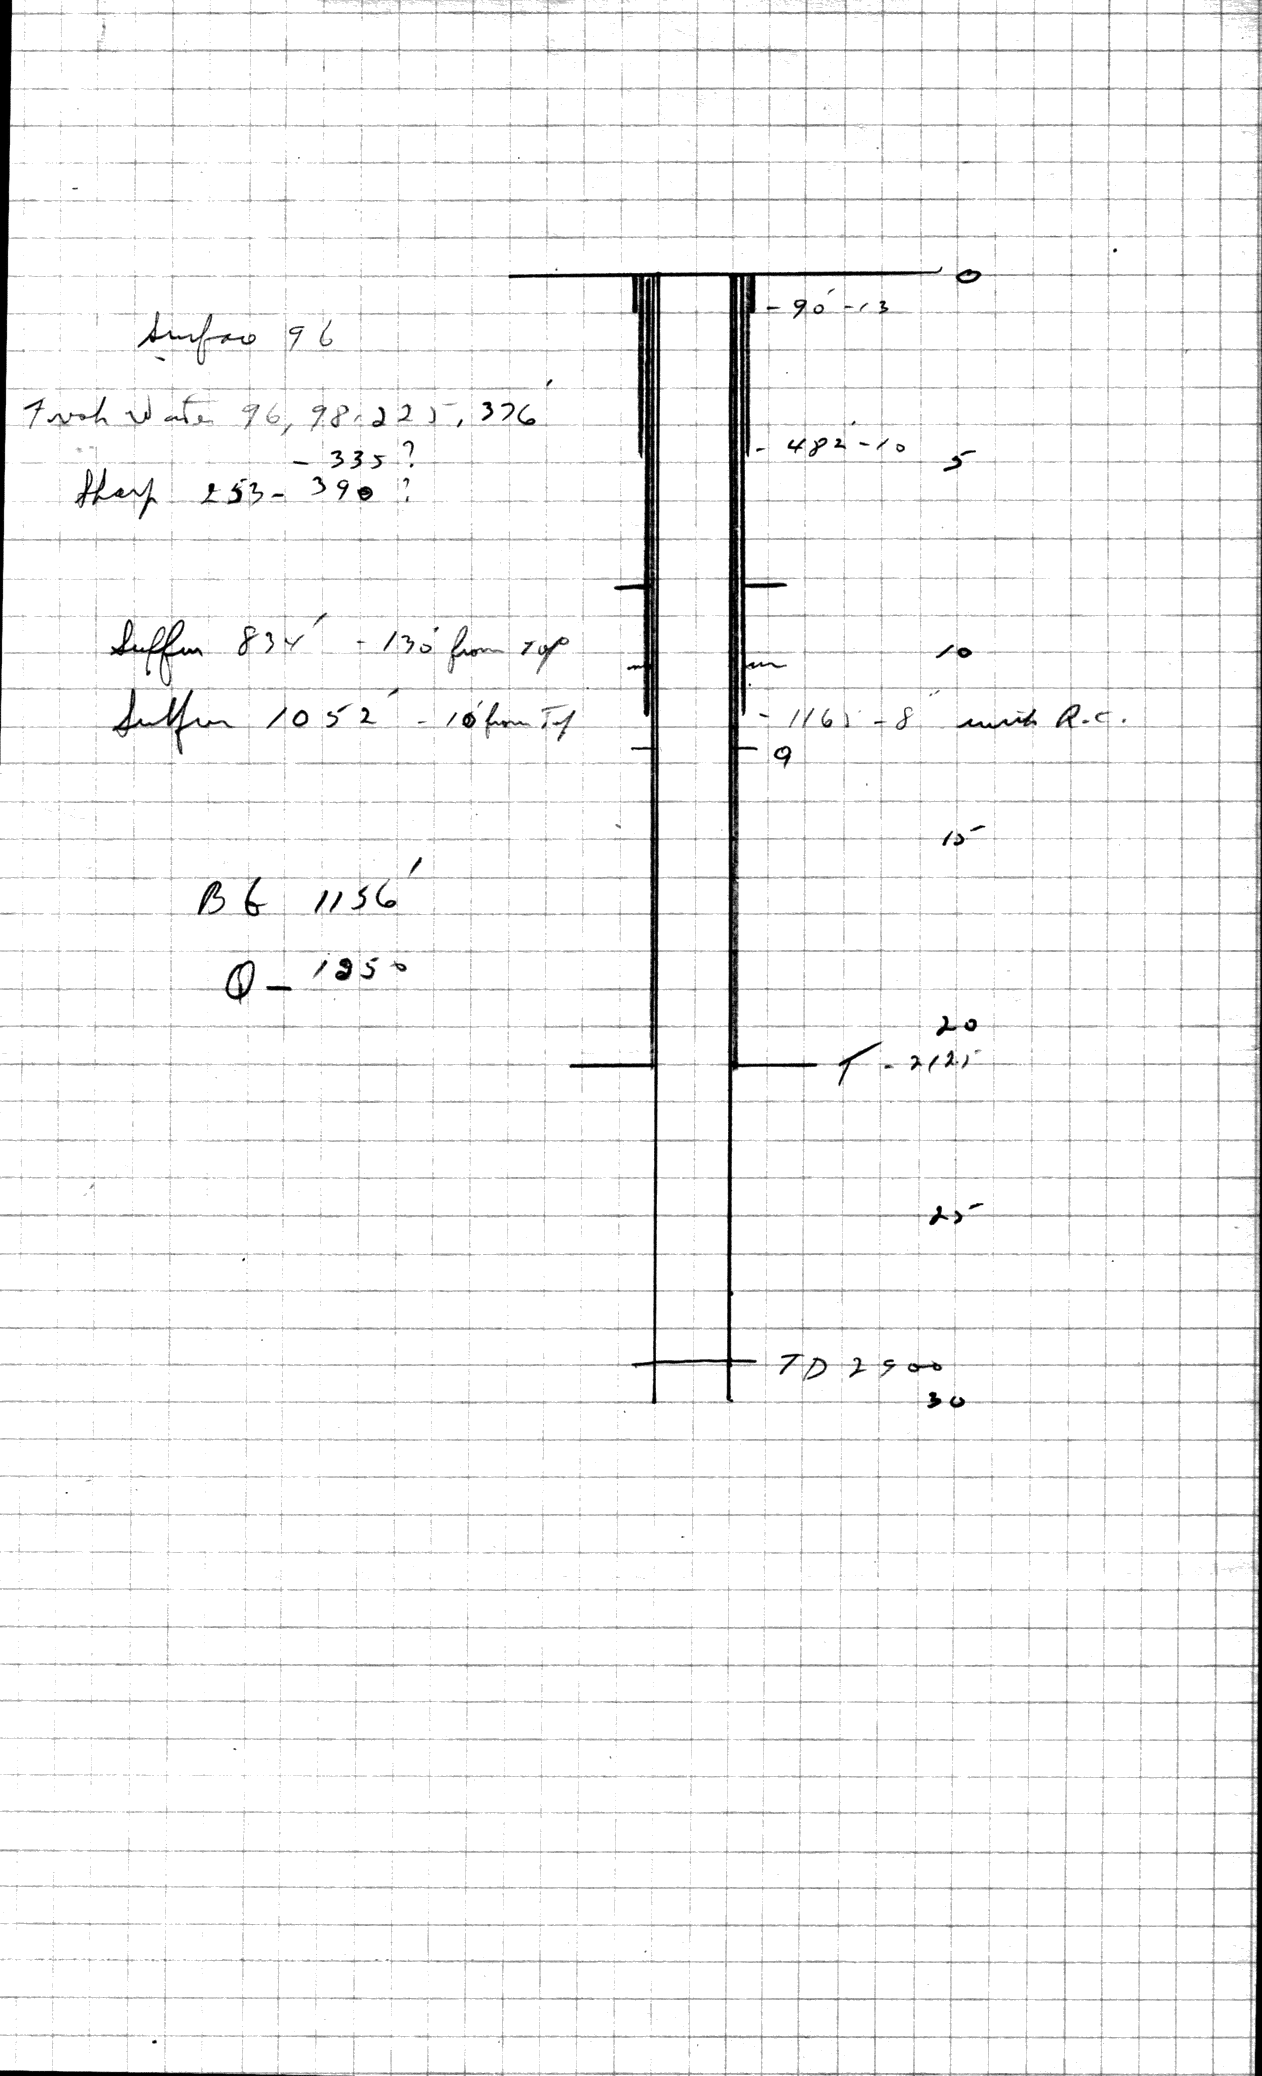 0
- 90' - 13
Surfac 96
Fresh Water 96, 98, 225, 376'
- 335 ?
- 482' - 10
5
Sharp 253 - 390 ?
Sulfur 834' - 130' from Top
10
Sulfur 1052' - 10' from Top
- 1165 - 8" with R.C.
Q
15
BG 1156'
Q - 1250
20
T - 2125
25
TD 2900
30